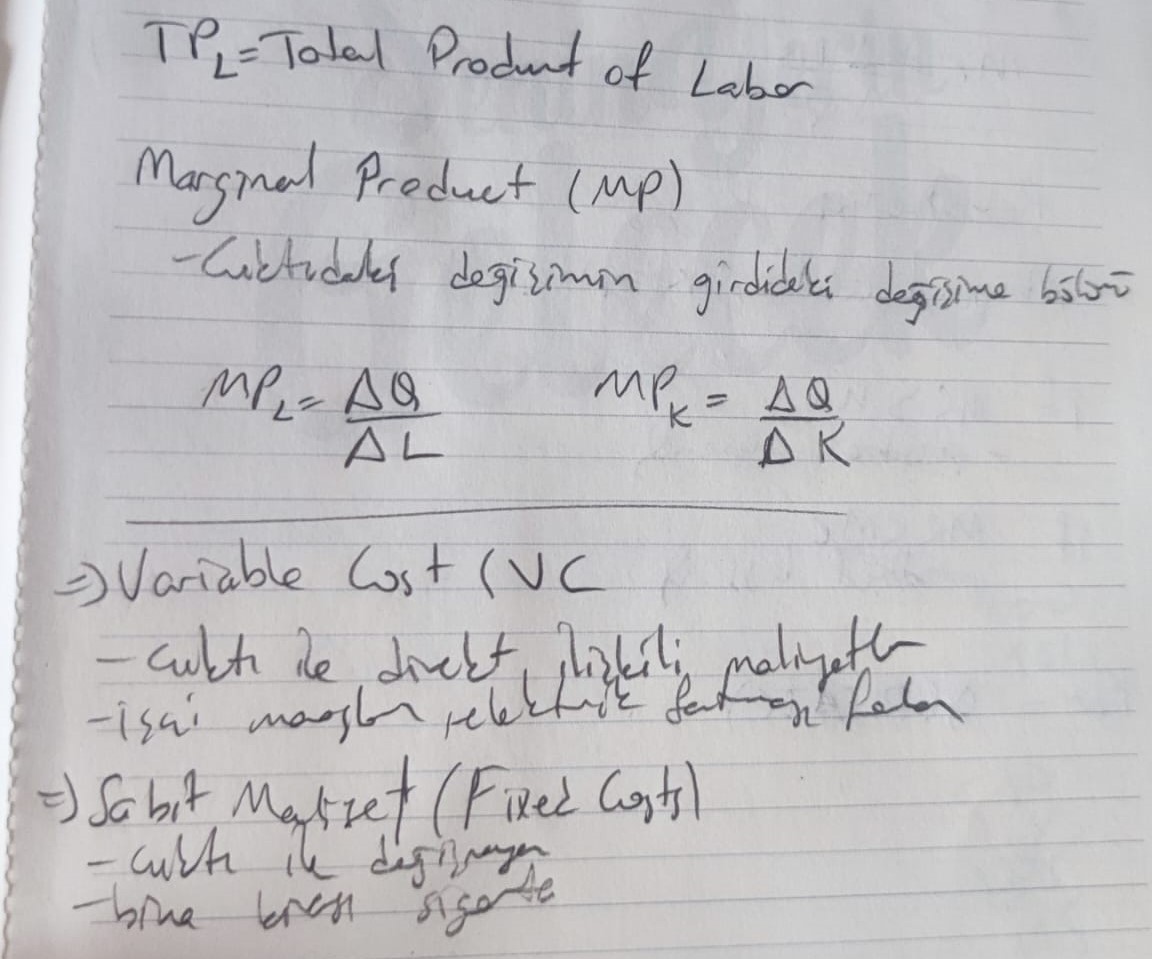 TP_L = Total Product of Labor
Marginal Product (MP)
- Çıktıdaki değişimin girdideki değişime bölümü
MP_L = ΔQ / ΔL    MP_K = ΔQ / ΔK
⇒ Variable Cost (VC
- Çıktı ile direkt ilişkili maliyetler
- işçi maaşları, elektrik faturası falan
⇒ Sabit Maliyet (Fixed Costs)
- Çıktı ile değişmeyen
- bina kirası sigorta